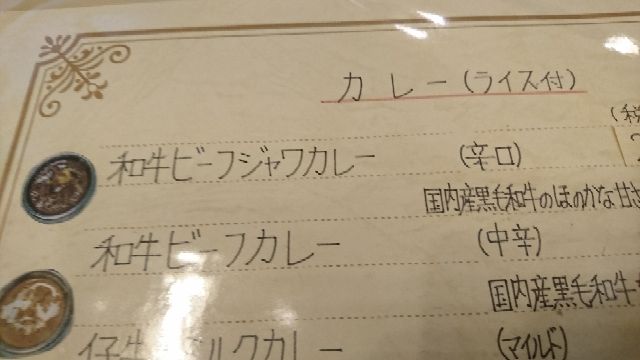 カレー(ライス付)
(税
和牛ビーフジャワカレー (辛口)
国内産黒毛和牛のほのかな甘さ
和牛ビーフカレー (中辛)
国内産黒毛和牛
仔牛 ミルクカレー (マイルド)